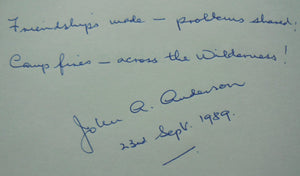 Friendships made — problems shared;
Camp fires — across the Wilderness!
John A. Anderson
23rd Sept. 1989.